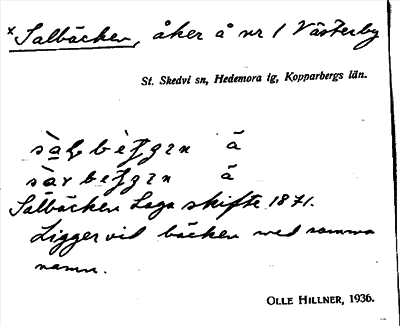 × Salbäcken, åker å nr 1 Västerby
St. Skedvi sn, Hedemora tg, Kopparbergs län.
å
å
Salbäcken Laga skifte 1871.
Ligger vid bäcken med samma
namn.
OLLE HILLNER, 1936.